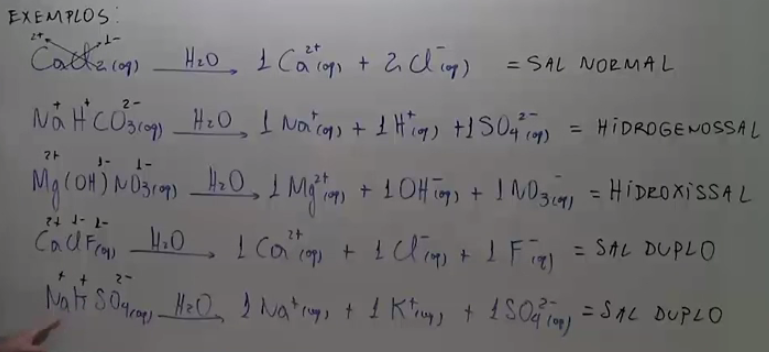 EXEMPLOS:
CaCl₂(aq) H₂O → 1 Ca²⁺(aq) + 2 Cl⁻(aq) = SAL NORMAL
NaHCO₃(aq) H₂O → 1 Na⁺(aq) + 1 H⁺(aq) + 1 SO₄²⁻(aq) = HIDROGENOSSAL
Mg(OH)NO₃(aq) H₂O → 1 Mg²⁺(aq) + 1 OH⁻(aq) + 1 NO₃⁻(aq) = HIDROXISSAL
CaClF(aq) H₂O → 1 Ca²⁺(aq) + 1 Cl⁻(aq) + 1 F⁻(aq) = SAL DUPLO
NaKSO₄(aq) H₂O → 1 Na⁺(aq) + 1 K⁺(aq) + 1 SO₄²⁻(aq) = SAL DUPLO